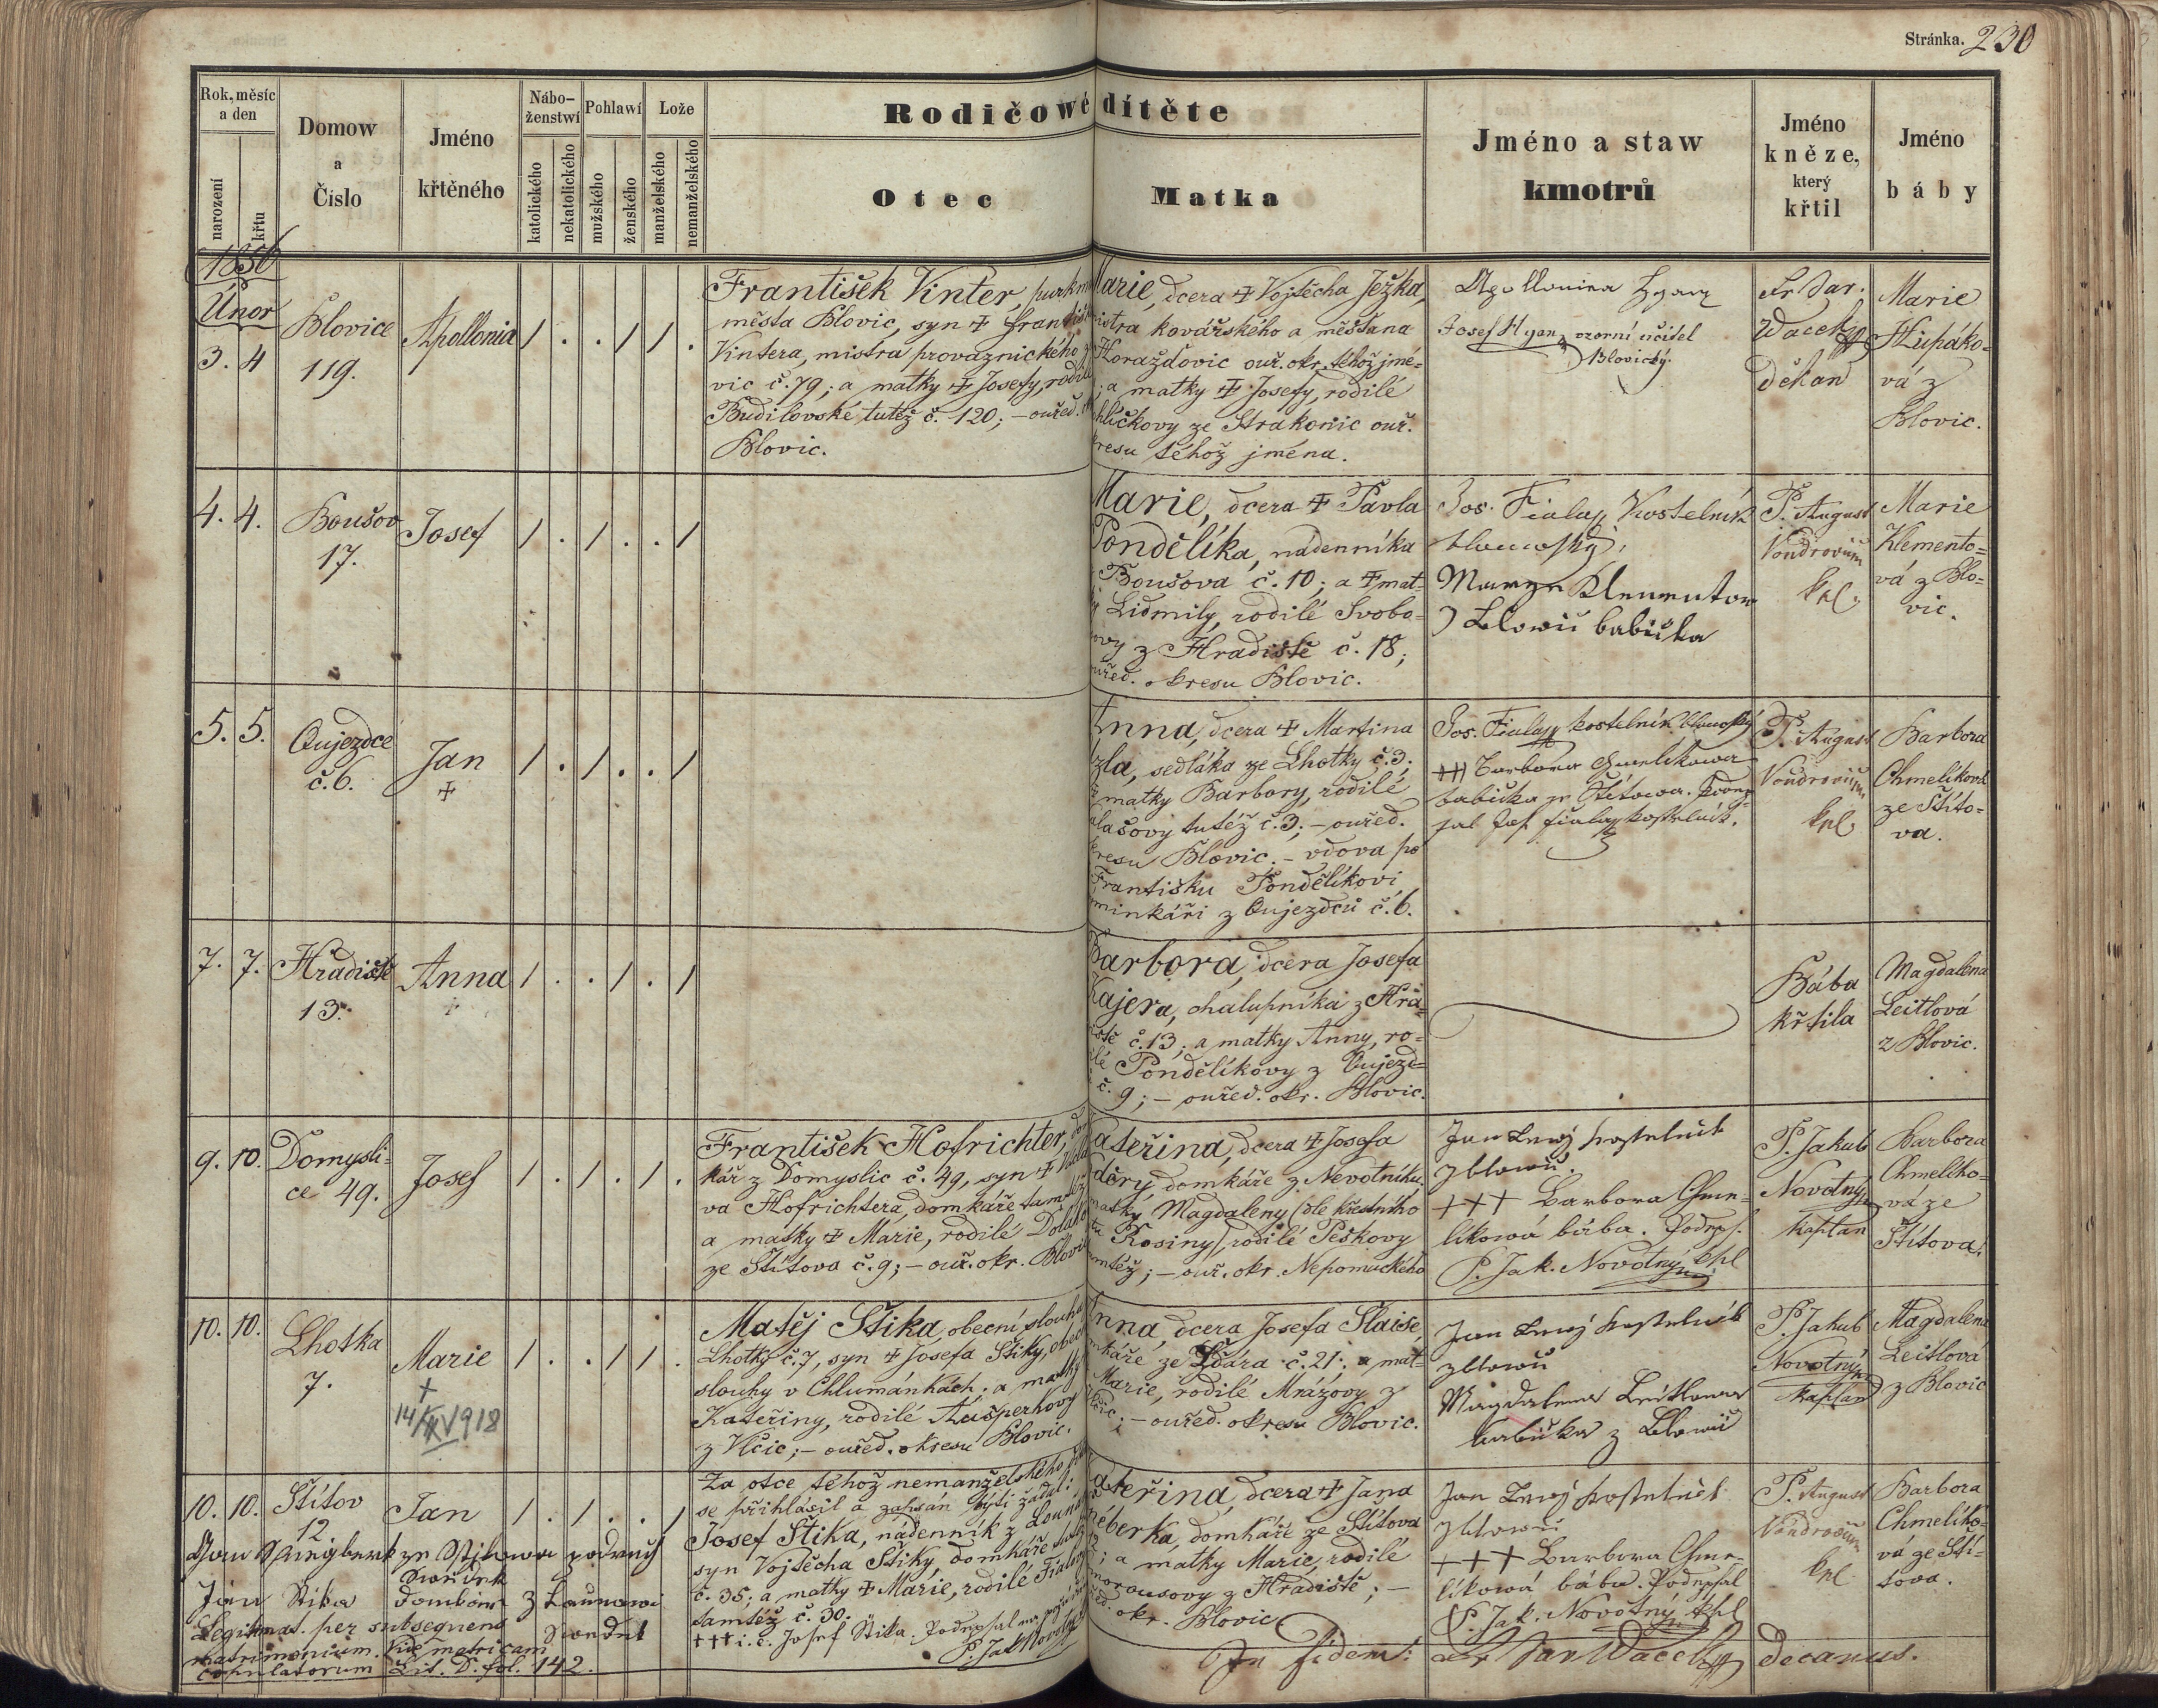 Stránka. 230
Rok, měsíc a den
narození
křtu
Domow
a
Čislo
Jméno
křtěného
Nábo-
ženstwí
katolického
nekatolického
Pohlawí
mužského
ženského
Lože
manželského
nemanželského
Rodičowé dítěte
Otec
Matka
Jméno a staw
kmotrů
Jméno
kněze,
který
křtil
Jméno
báby
1856
Únor
3. 4
Blovice
119.
Apollonia
1 . . 1 1 .
František Vinter, purkm
města Blovic, syn ✝ Františ
Vintera, mistra provaznického z
vic č. 79; a matky ✝ Josefy, rodil
Budilovské tutéž č. 120; – ouřed.
Blovic.
Marie, dcera ✝ Vojtěcha Ježka,
istra kovářského a měšťana
Horažďovic ouř. okr. téhož jmé-
; a matky ✝ Josefy, rodilé
hličkovy ze Strakonic ouř.
kresu téhož jména.
Josef Hyan, vzorní učitel
Blovický.
Fr Dar.
Wacek
děkan
Marie
Hlupáko-
vá z
Blovic.
4. 4.
Boušov
17.
Josef
1 . 1 . . 1
Marie, dcera ✝ Pavla
Pondělíka, nádenníka
Boušova č. 10; a ✝ mat-
Lidmily, rodilé Svobo-
ovy z Hradiště č. 18;
ouřed. okresu Blovic.
Jos. Fiala Kostelník
blowický,
Klementow
z Blowic babička
P. August
Vondrovic
kpl.
Marie
Klemento-
vá z Blo-
vic.
5. 5.
Oujezdce
č. 6.
Jan
✝
1 . 1 . . 1
Anna, dcera ✝ Martina
zla, sedláka ze Lhotky č. 3;
matky Barbory, rodilé
lašovy tutéž č. 3; – ouřed.
kresu Blovic. – vdova po
Františku Pondělíkovi
minkáři z Oujezdců č. 6.
Jos. Fiala kostelník blowický
+++ Barbora Chmelikowa
babička ze Štítowa. Podep-
sal Jos. Fiala kostelník.
P. August
Vondrovic
kpl.
Barbora
Chmelíkova
ze Štíto-
va.
7. 7.
Hradiště
13.
Anna
✝
1 . . 1 . 1
Barbora, dcera Josefa
Kajera, chalupníka z Hra-
iště č. 13; a matky Anny, ro-
lé Pondělíkovy z Oujezd-
č. 9; – ouřed. okr. Blovic.
Bába
křtila
Magdalena
Leitlová
z Blovic.
9. 10.
Domysli-
ce 49.
Josef
1 . 1 . 1 .
František Hofrichter, dom
kář z Domyslic č. 49, syn ✝ Václa
va Hofrichtera, domkáře tamtéž
a matky ✝ Marie, rodilé
ze Štítova č. 9; – ouř. okr. Blovic
Kateřina, dcera ✝ Josefa
domkáře z Nevotníku
matky Magdaleny (dle křestního
Rosiny), rodilé Peškovy
tamtéž; – ouř. okr. Nepomuckého
Jan kostelník
z Blowic.
+++ Barbora Chme-
líkowá bába. Podeps.
P. Jak. Novotný kpl
P. Jakub
Novotný
kaplan
Barbora
Chmelíko-
vá ze
Štítova.
10. 10.
Lhotka
7.
Marie
+
14/XI 1918
1 . . 1 1 .
Matěj Štika, obecní slouha
Lhotky č. 7, syn ✝ Josefa Štiky, obec
slouhy v Chlumánkách; a matky
Kateřiny, rodilé Kašperkovy
z Vlčic; – ouřed. okresu Blovic.
Anna, dcera Josefa Slaise,
mkáře ze Ždára č. 21; a mat-
Marie, rodilé Mrázovy z
Vlčic; – ouřed. okresu Blovic.
Jan kostelník
z Blowic
Magdalena Leitlowa
babička z Blowic
P. Jakub
Novotný
kaplan
Magdalena
Leitlová
z Blovic
10. 10.
Štítov
12.
Jan
1 . 1 . . 1
Za otce téhož nemanželského
se přihlásil a zapsán býti žádal:
Josef Štika, nádenník z Louňo
syn Vojtěcha Štiky, domkáře tutéž
č. 35; a matky ✝ Marie, rodilé Fialovy
tamtéž č. 30.
+++ i. e. Josef Štika. Podepsal na
P. Jak Novotný
Kateřina, dcera ✝ Jana
domkáře ze Štítova
; a matky Marie, rodilé
z Hradiště; –
okr. Blovic
Jan kostelník
z Blowic
+++ Barbora Chme-
líkowá bába. Podepsal
P. Jak. Novotný kpl
P. August
Vondrovic
kpl
Barbora
Chmelíko-
vá ze Ští-
tova.
Jan Špriegberk ze Stjtowa
swědek
Jan Štika domkář z Launowi
swědek
Legitimat. per subsequens
matrimonium. Vide matricam
copulatorum Lit. D. fol. 142.
In fidem: Fr Dar Wacek decanus.